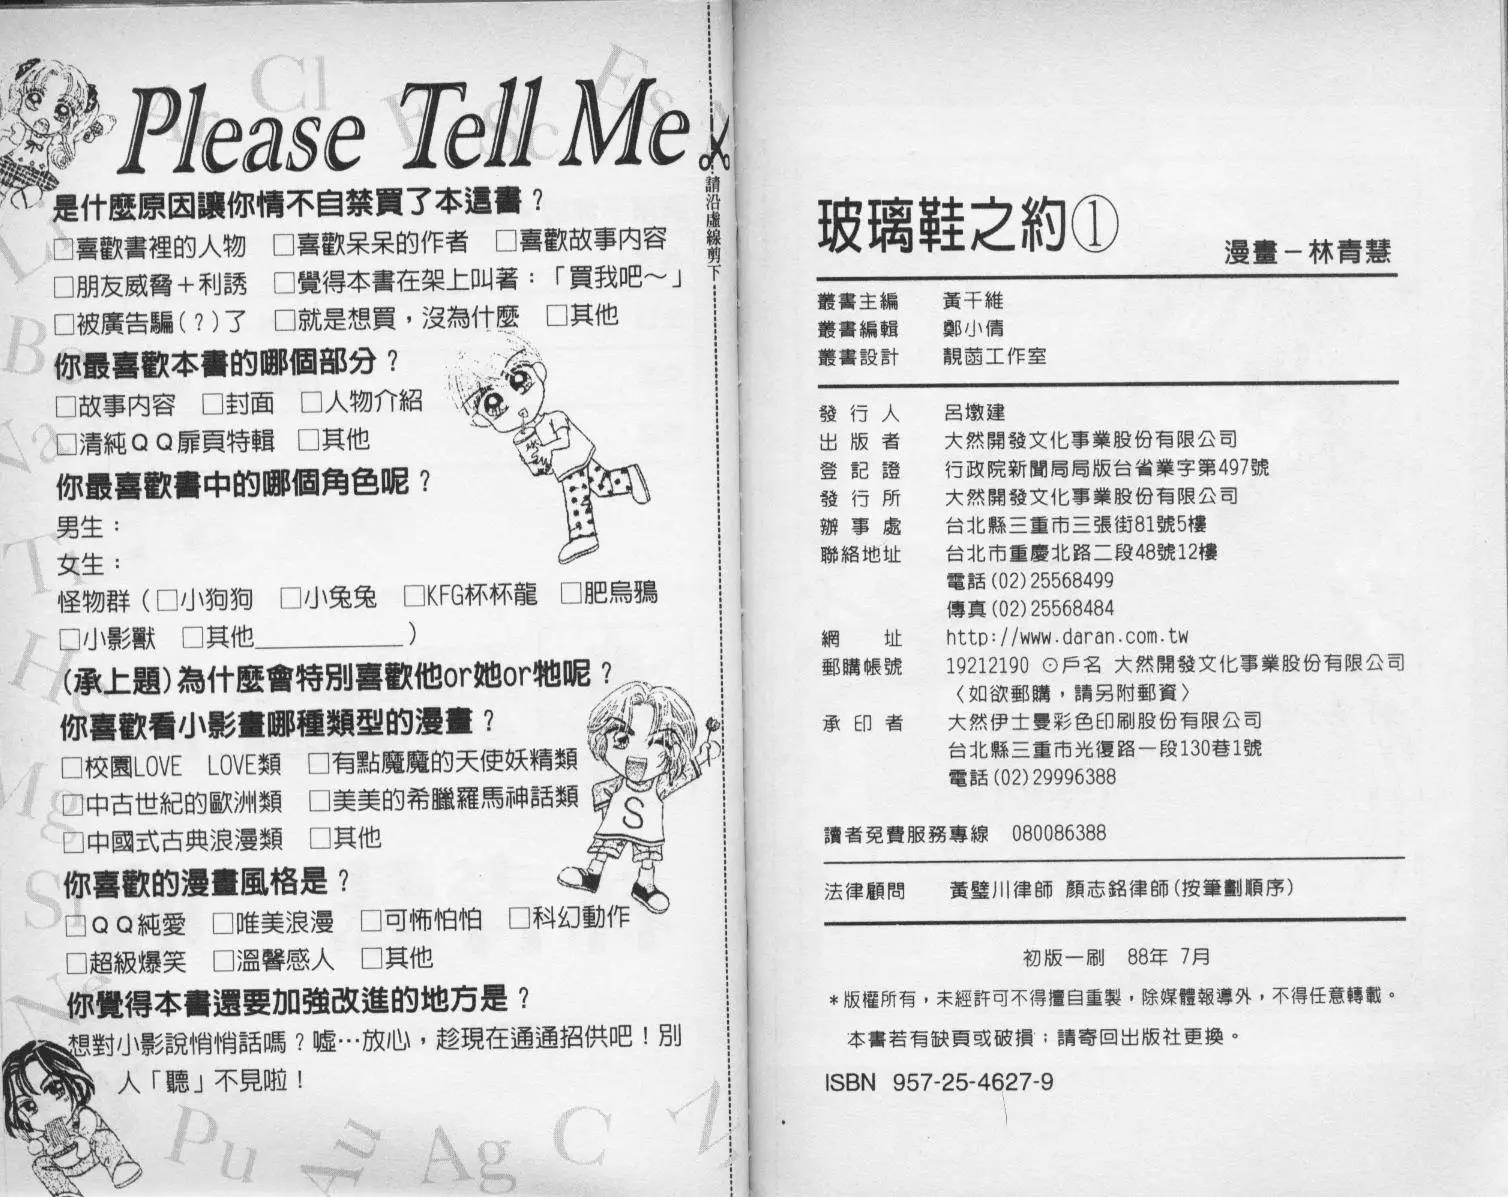 Please Tell Me
請沿虛線剪下
是什麼原因讓你情不自禁買了本這書？
□喜歡書裡的人物　□喜歡呆呆的作者　□喜歡故事內容
□朋友威脅＋利誘　□覺得本書在架上叫著：「買我吧～」
□被廣告騙(？)了　□就是想買，沒為什麼　□其他
你最喜歡本書的哪個部分？
□故事內容　□封面　□人物介紹
□清純ＱＱ扉頁特輯　□其他
你最喜歡書中的哪個角色呢？
男生：
女生：
怪物群（□小狗狗　□小兔兔　□KFG杯杯龍　□肥烏鴉
□小影獸　□其他____________）
(承上題)為什麼會特別喜歡他or她or牠呢？
你喜歡看小影畫哪種類型的漫畫？
□校園LOVE　LOVE類　□有點魔魔的天使妖精類
□中古世紀的歐洲類　□美美的希臘羅馬神話類
□中國式古典浪漫類　□其他
你喜歡的漫畫風格是？
□ＱＱ純愛　□唯美浪漫　□可怖怕怕　□科幻動作
□超級爆笑　□溫馨感人　□其他
你覺得本書還要加強改進的地方是？
想對小影說悄悄話嗎？噓…放心，趁現在通通招供吧！別
人「聽」不見啦！
Cl
Es
Sc
Ar
Li
Be
Na
Ti
H
Mg
Sr
Ne
Pu
Au
Ag
C
S
玻璃鞋之約①
漫畫－林青慧
叢書主編　黃干維
叢書編輯　鄭小倩
叢書設計　靚菡工作室
發行人　呂墩建
出版者　大然開發文化事業股份有限公司
登記證　行政院新聞局局版台省業字第497號
發行所　大然開發文化事業股份有限公司
辦事處　台北縣三重市三張街81號5樓
聯絡地址　台北市重慶北路二段48號12樓
電話(02)25568499
傳真(02)25568484
網址　http://www.daran.com.tw
郵購帳號　19212190 ⊙戶名 大然開發文化事業股份有限公司
〈如欲郵購，請另附郵資〉
承印者　大然伊士曼彩色印刷股份有限公司
台北縣三重市光復路一段130巷1號
電話(02)29996388
讀者免費服務專線　080086388
法律顧問　黃璧川律師 顏志銘律師(按筆劃順序)
初版一刷　88年 7月
＊版權所有，未經許可不得擅自重製，除媒體報導外，不得任意轉載。
本書若有缺頁或破損；請寄回出版社更換。
ISBN 957-25-4627-9